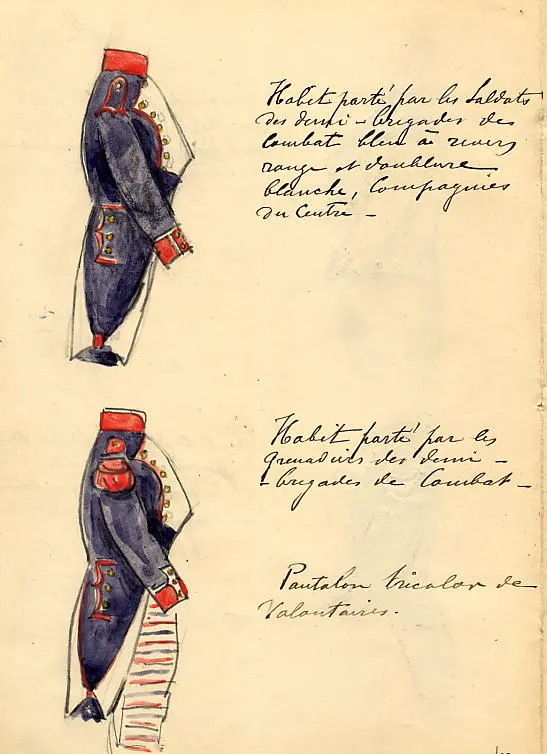 Habit porté par les Soldats
des demi-brigades de
Combat bleu à revers
rouge et doublure
blanche, Compagnies
du Centre -
Habit porté par les
grenadiers des demi -
- brigades de Combat -
Pantalon tricolor de
Volontaires.